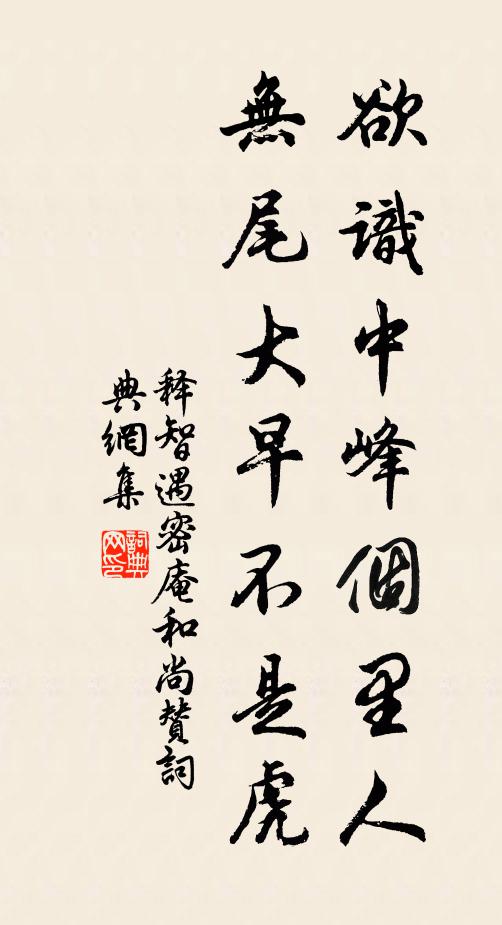 欲識中峰個里人
無尾大早不是虎
释智遇密庵和尚贊詞
典網集
詞典网印